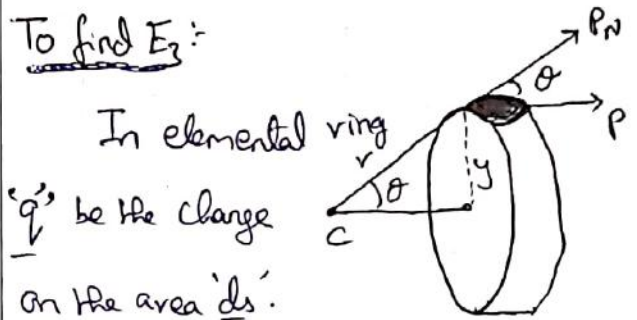 To find E₃:-
In elemental ring
'q' be the change
on the area 'ds'.
P_N
θ
P
r
θ
y
C